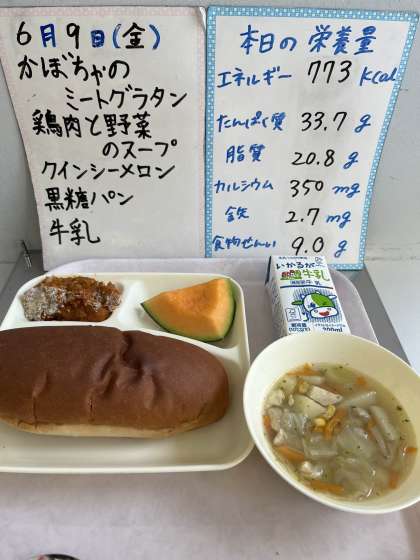 6月9日(金)
かぼちゃの
ミートグラタン
鶏肉と野菜
のスープ
クインシーメロン
黒糖パン
牛乳
本日の栄養量
エネルギー 773 Kcal
たんぱく質 33.7 g
脂質 20.8 g
カルシウム 350 mg
鉄 2.7 mg
食物せんい 9.0 g
いかるが
牛乳
200ml